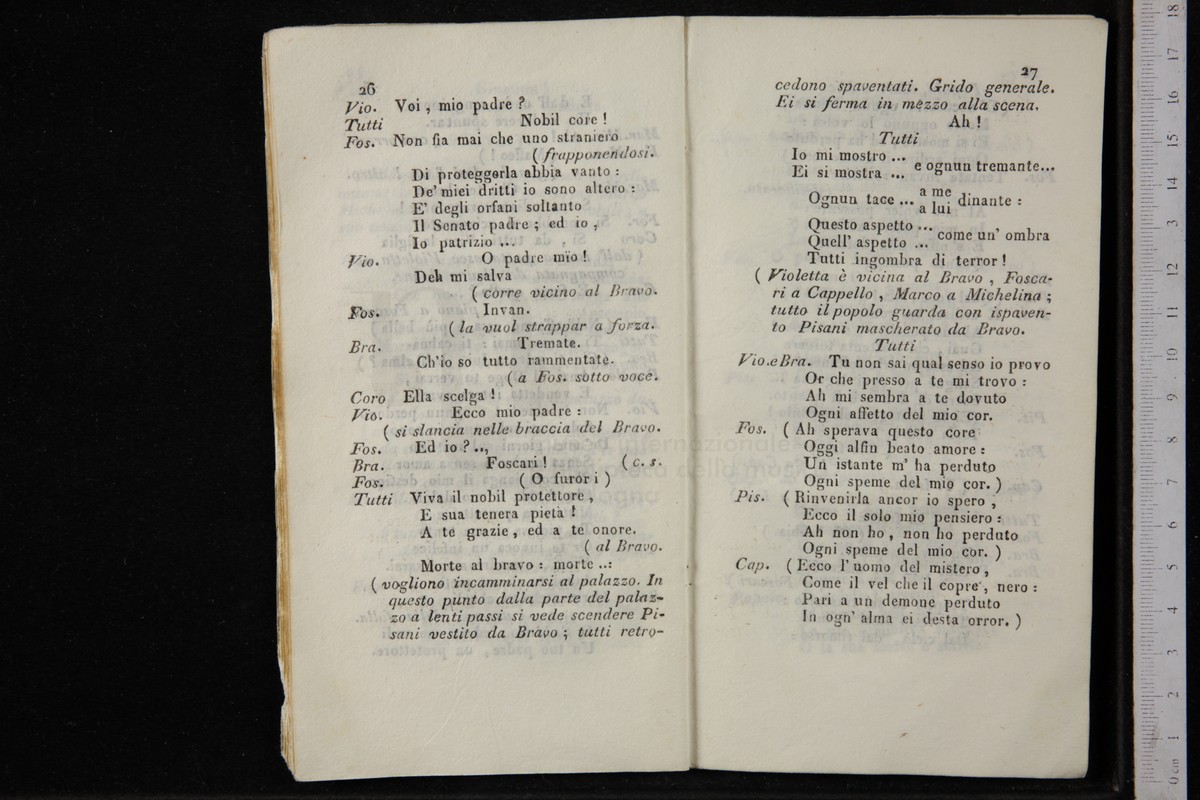 26
Vio. Voi, mio padre ?
Tutti Nobil core !
Fos. Non fia mai che uno straniero
( frapponendosi.
Di proteggerla abbia vanto :
De' miei dritti io sono altero :
E' degli orfani soltanto
Il Senato padre ; ed io ,
Io patrizio ...
Vio. O padre mio !
Deh mi salva
( corre vicino al Bravo.
Fos. Invan.
( la vuol strappar a forza.
Bra. Tremate.
Ch'io so tutto rammentate.
( a Fos. sotto voce.
Coro Ella scelga !
Vio. Ecco mio padre :
( si slancia nelle braccia del Bravo.
Fos. Ed io ? ..,
Bra. Foscari ! ( c. s.
Fos. ( O furor i )
Tutti Viva il nobil protettore ,
E sua tenera pietà !
A te grazie , ed a te onore.
( al Bravo.
Morte al bravo : morte ..:
( vogliono incamminarsi al palazzo. In
questo punto dalla parte del palaz-
zo a lenti passi si vede scendere Pi-
sani vestito da Bravo ; tutti retro-
27
cedono spaventati. Grido generale.
Ei si ferma in mezzo alla scena.
Ah !
Tutti
Io mi mostro ...
Ei si mostra ... e ognun tremante...
Ognun tace ... a me
a lui dinante :
Questo aspetto ...
Quell' aspetto ... come un' ombra
Tutti ingombra di terror !
( Violetta è vicina al Bravo , Fosca-
ri a Cappello , Marco a Michelina ;
tutto il popolo guarda con ispaven-
to Pisani mascherato da Bravo.
Tutti
Vio.e Bra. Tu non sai qual senso io provo
Or che presso a te mi trovo :
Ah mi sembra a te dovuto
Ogni affetto del mio cor.
Fos. ( Ah sperava questo core
Oggi alfin beato amore :
Un istante m' ha perduto
Ogni speme del mio cor. )
Pis. ( Rinvenirla ancor io spero ,
Ecco il solo mio pensiero :
Ah non ho , non ho perduto
Ogni speme del mio cor. )
Cap. ( Ecco l' uomo del mistero ,
Come il vel che il copre , nero :
Pari a un demone perduto
In ogn' alma ei desta orror. )